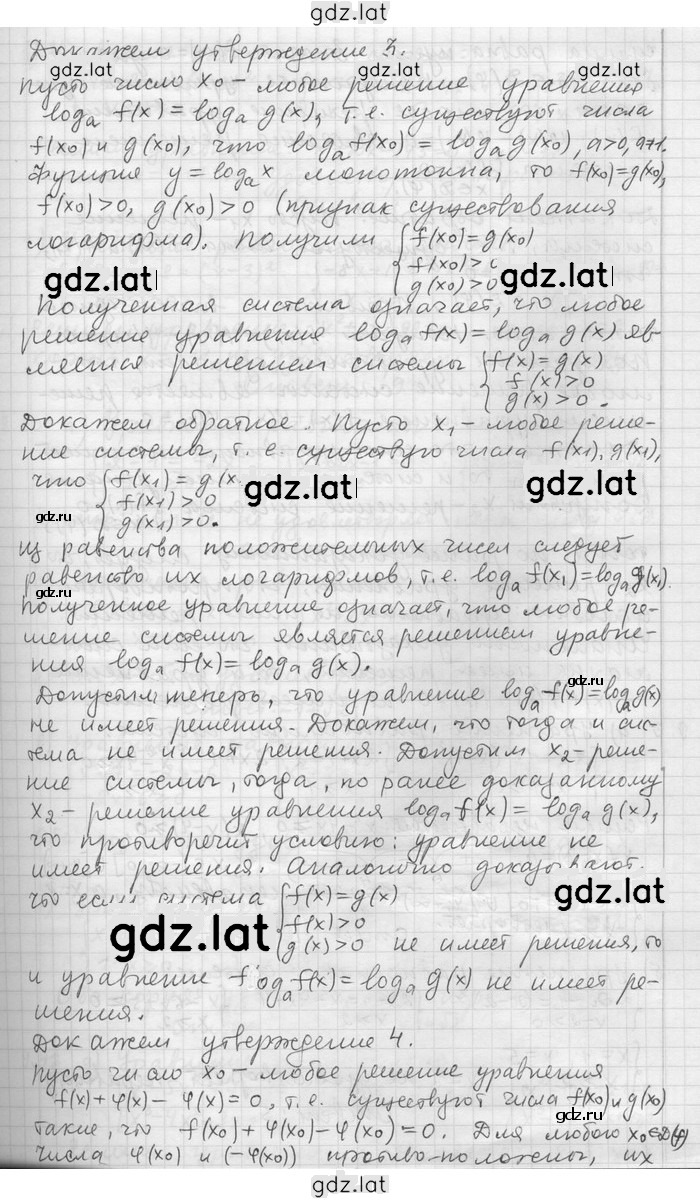 gdz.lat
Докажем утверждение 3.
gdz.lat gdz.lat
пусть число x₀ – любое решение уравнения
logₐ f(x) = logₐ g(x), т.е. существуют числа
f(x₀) и g(x₀), что logₐ f(x₀) = logₐ g(x₀), a>0, a≠1.
Функция y = logₐ x монотонна, то f(x₀)=g(x₀),
f(x₀)>0, g(x₀)>0 (признак существования
логарифма). Получили { f(x₀)=g(x₀)
f(x₀)>0
g(x₀)>0
gdz.lat gdz.lat
Полученная система означает, что любое
решение уравнения logₐ f(x) = logₐ g(x) яв-
ляется решением системы { f(x) = g(x)
f(x)>0
g(x)>0.
Докажем обратное. Пусть x₁ – любое реше-
ние системы, т.е. существую числа f(x₁), g(x₁),
что { f(x₁) = g(x
f(x₁)>0
g(x₁)>0.
gdz.lat gdz.lat
gdz.ru
из равенства положительных чисел следует
равенство их логарифмов, т.е. logₐ f(x₁)=logₐ g(x₁).
gdz.ru gdz.ru
Полученное уравнение означает, что любое ре-
шение системы является решением уравне-
ния logₐ f(x) = logₐ g(x).
gdz.ru
Допустим теперь, что уравнение logₐ f(x)=logₐ g(x)
gdz.ru gdz.ru
не имеет решения. Докажем, что тогда и сис-
тема не имеет решения. Допустим x₂ – реше-
ние системы, тогда, по ранее доказанному
x₂ – решение уравнения logₐ f(x) = logₐ g(x),
что противоречит условию: уравнение не
имеет решения. Аналогично доказывают.
что если система { f(x)=g(x)
f(x)>0
g(x)>0 не имеет решения, то
gdz.lat gdz.lat
и уравнение logₐ f(x) = logₐ g(x) не имеет ре-
шения.
Докажем утверждение 4.
пусть число x₀ – любое решение уравнения
f(x)+φ(x) – φ(x) = 0, т.е. существуют числа f(x₀) и g(x₀)
gdz.ru
такие, что f(x₀)+φ(x₀) – φ(x₀) = 0. Для любого x₀∈D(φ)
числа φ(x₀) и (–φ(x₀)) противоположены, их
gdz.lat